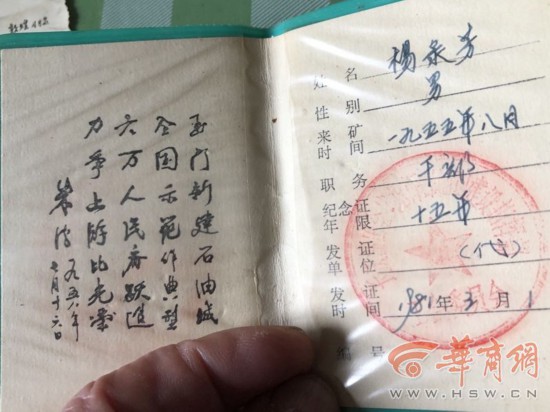 玉门新建石油城
全国示范作典型
六万人民齐跃进
力争上游比光荣
朱德 一九五八年
七月十六日
姓名 杨永芳
性别 男
来矿时间 一九五五年八月
职务 干部
纪念证年限 十五年
发证单位 (代)
发证时间 1981年5月1
编号
华商网
WWW.HSW.CN